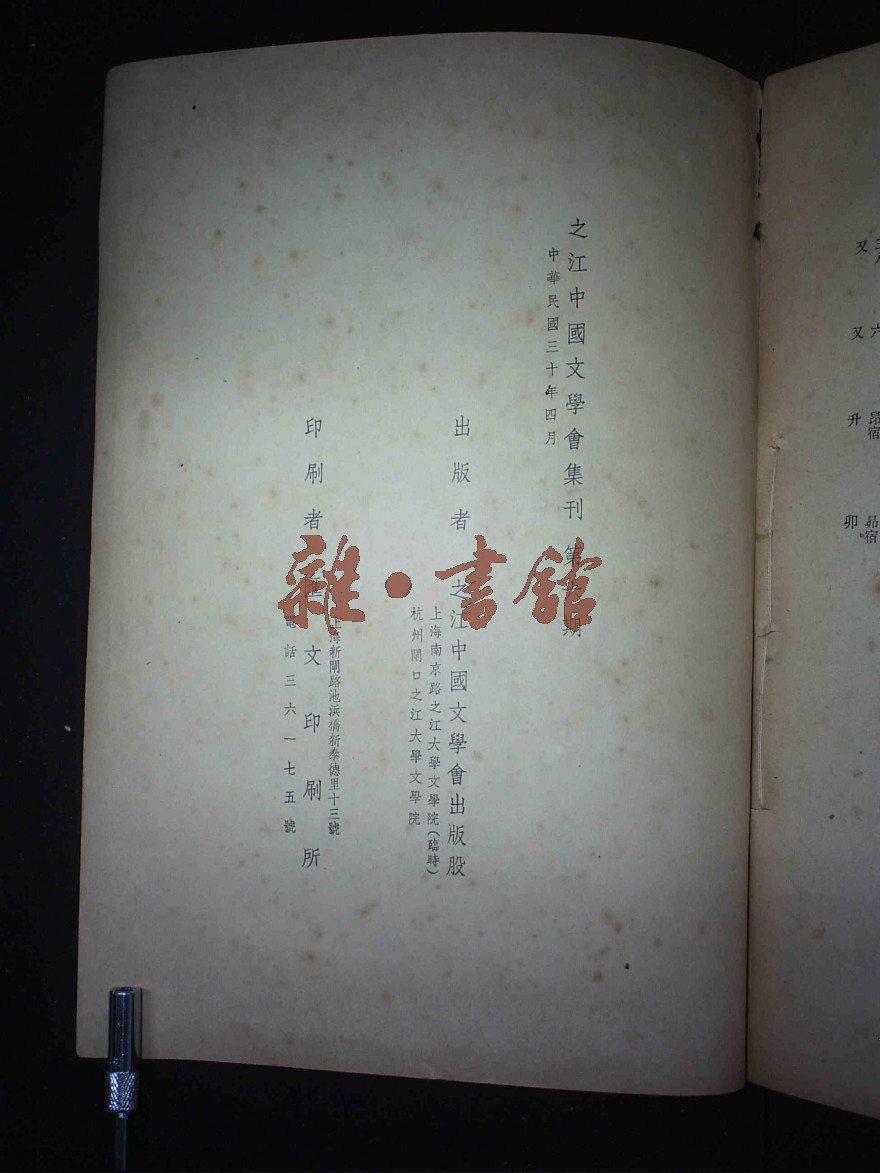 之江中國文學會集刊第 期
中華民國三十年四月
出版者 之江中國文學會出版股
上海南京路之江大學文學院(臨時)
杭州閘口之江大學文學院
印刷者 匯文印刷所
上海新閘路池浜橋新泰德里十三號
電話三六一七五號
雜·書館
又
又 六
升 昴宿
卯 昴宿